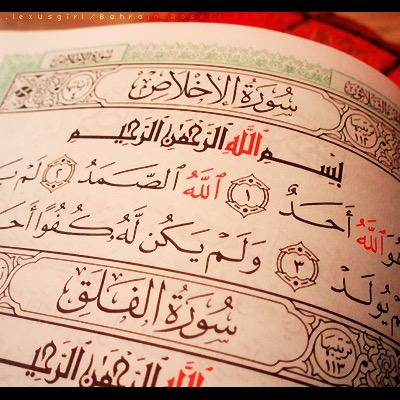 .lexusgirl/Bahrain
سُورَةُ الإِخْلَاصِ
بِسْمِ ٱللَّهِ ٱلرَّحْمَٰنِ ٱلرَّحِيمِ
هُوَ ٱللَّهُ أَحَدٌ ١ ٱللَّهُ ٱلصَّمَدُ ٢ لَمْ
يُولَدْ ٣ وَلَمْ يَكُن لَّهُۥ كُفُوًا
سُورَةُ الفَلَقِ ترتيبها ١١٣
ٱللَّهِ ٱلرَّحْمَٰنِ ٱلرَّحِي